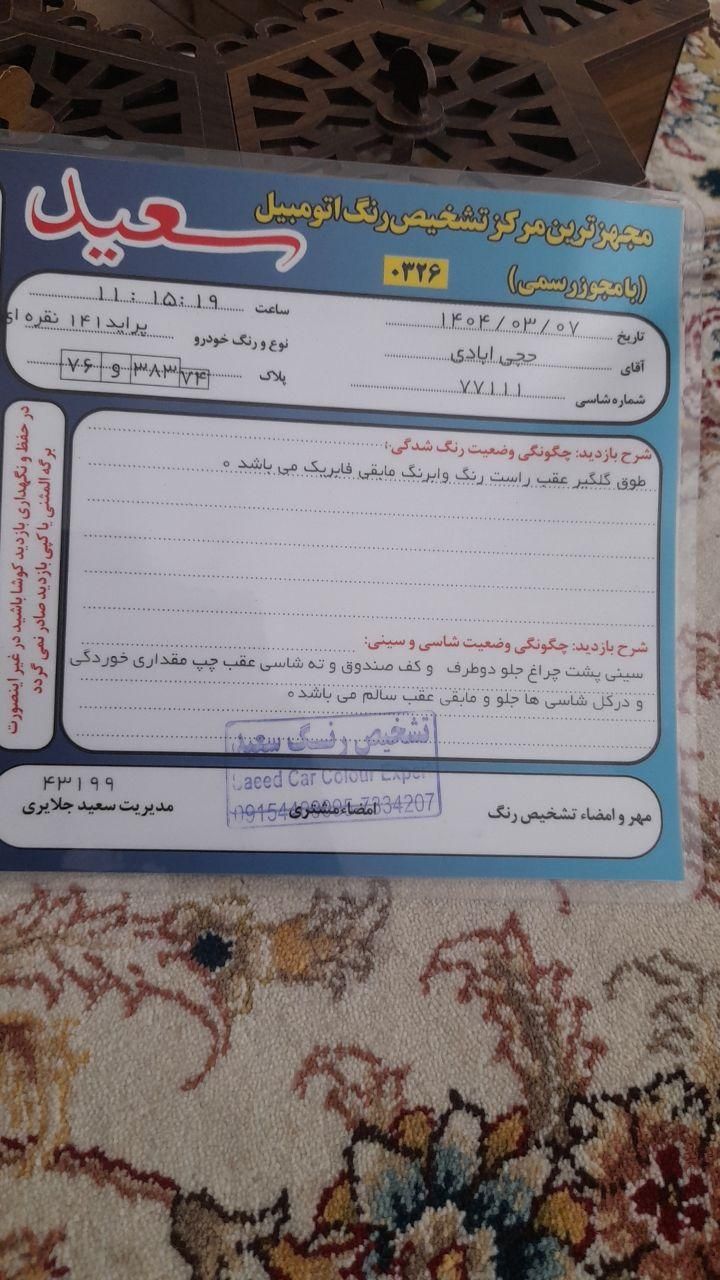 مجهزترین مرکز تشخیص رنگ اتومبیل
سعید
(با مجوز رسمی)
۰۳۲۶
تاریخ ۱۴۰۴/۰۳/۰۷
ساعت ۱۱:۱۵:۱۹
آقای حجی ابادی
نوع و رنگ خودرو پراید۱۴۱ نقره ای
شماره شاسی ۷۷۱۱۱
پلاک ۷۶ و ۳۸۳ ۷۴
شرح بازدید: چگونگی وضعیت رنگ شدگی:
طوق گلگیر عقب راست رنگ وابرنگ مابقی فابریک می باشد ०
شرح بازدید: چگونگی وضعیت شاسی و سینی:
سینی پشت چراغ جلو دوطرف و کف صندوق و ته شاسی عقب چپ مقداری خوردگی
و درکل شاسی ها جلو و مابقی عقب سالم می باشد०
در حفظ و نگهداری بازدید کوشا باشید در غیر اینصورت
برگه المثنی یا کپی بازدید صادر نمی گردد
تشخیص رنگ سعید
Saeed Car Colour Expert
7334207
مهر و امضاء تشخیص رنگ
امضاء مشتری
۴۳۱۹۹
مدیریت سعید جلایری